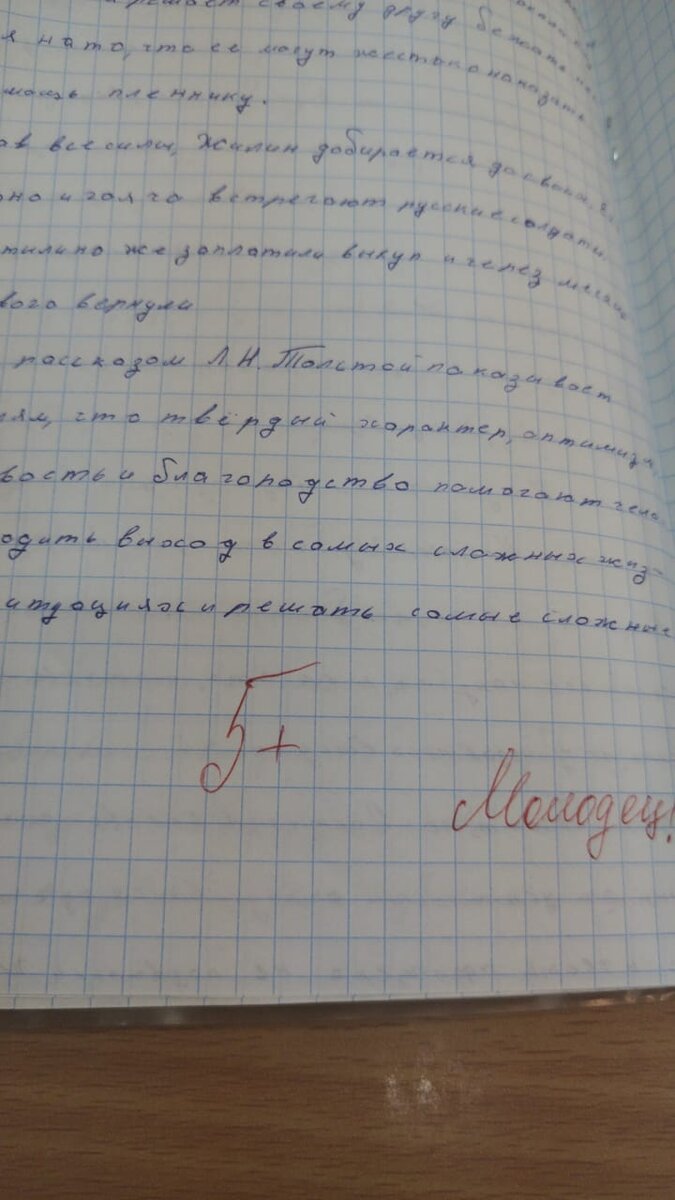 решает своему другу бежать
я на то, что ее могут жестоко наказать
мощь пленнику.
ав все силы, Жилин добирается до своих.
но и горячо встречают русские солдаты.
тилина же заплатили выкуп и через месяц
вого вернули
рассказом Л.Н. Толстой показывает
лям, что твёрдый характер, оптимизм,
вость и благородство помогают чело
одить выход в самых сложных жиз-
итуациях и решать самые сложные
5+
Молодец!